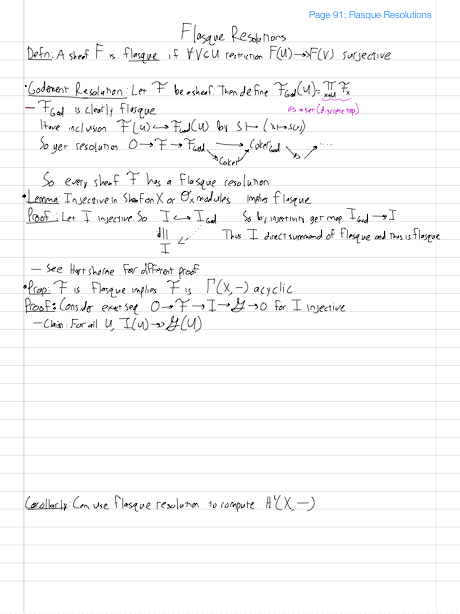 Page 91: Flasque Resolutions
Flasque Resolutions
Defn: A sheaf F is flasque if ∀V⊂U restriction F(U)→F(V) surjective
• Godement Resolution: Let F be a sheaf. Then define F_God(U) = ∏_{x∈U} F_x
as a set (discrete top)
— F_God is clearly flasque
Have inclusion F(U) ↪ F_God(U) by s ↦ (x↦s(x))
So get resolution 0→F→F_God → Coker_God → ....
Coker
So every sheaf F has a flasque resolution
• Lemma: Injective in Sh of on X or O_X modules implies flasque
Proof: Let I injective. So I ↪ I_God So by injectivity get map I_God → I
id Thus I direct summand of flasque and thus is flasque
I
— See Hartshorne for different proof
• Prop: F is flasque implies F is Γ(X,−) acyclic
Proof: Consider exact seq 0→F→I→G→0 for I injective
— Claim: For all U, I(U) ↠ G(U)
Corollarly: Can use flasque resolution to compute H^i(X,−)